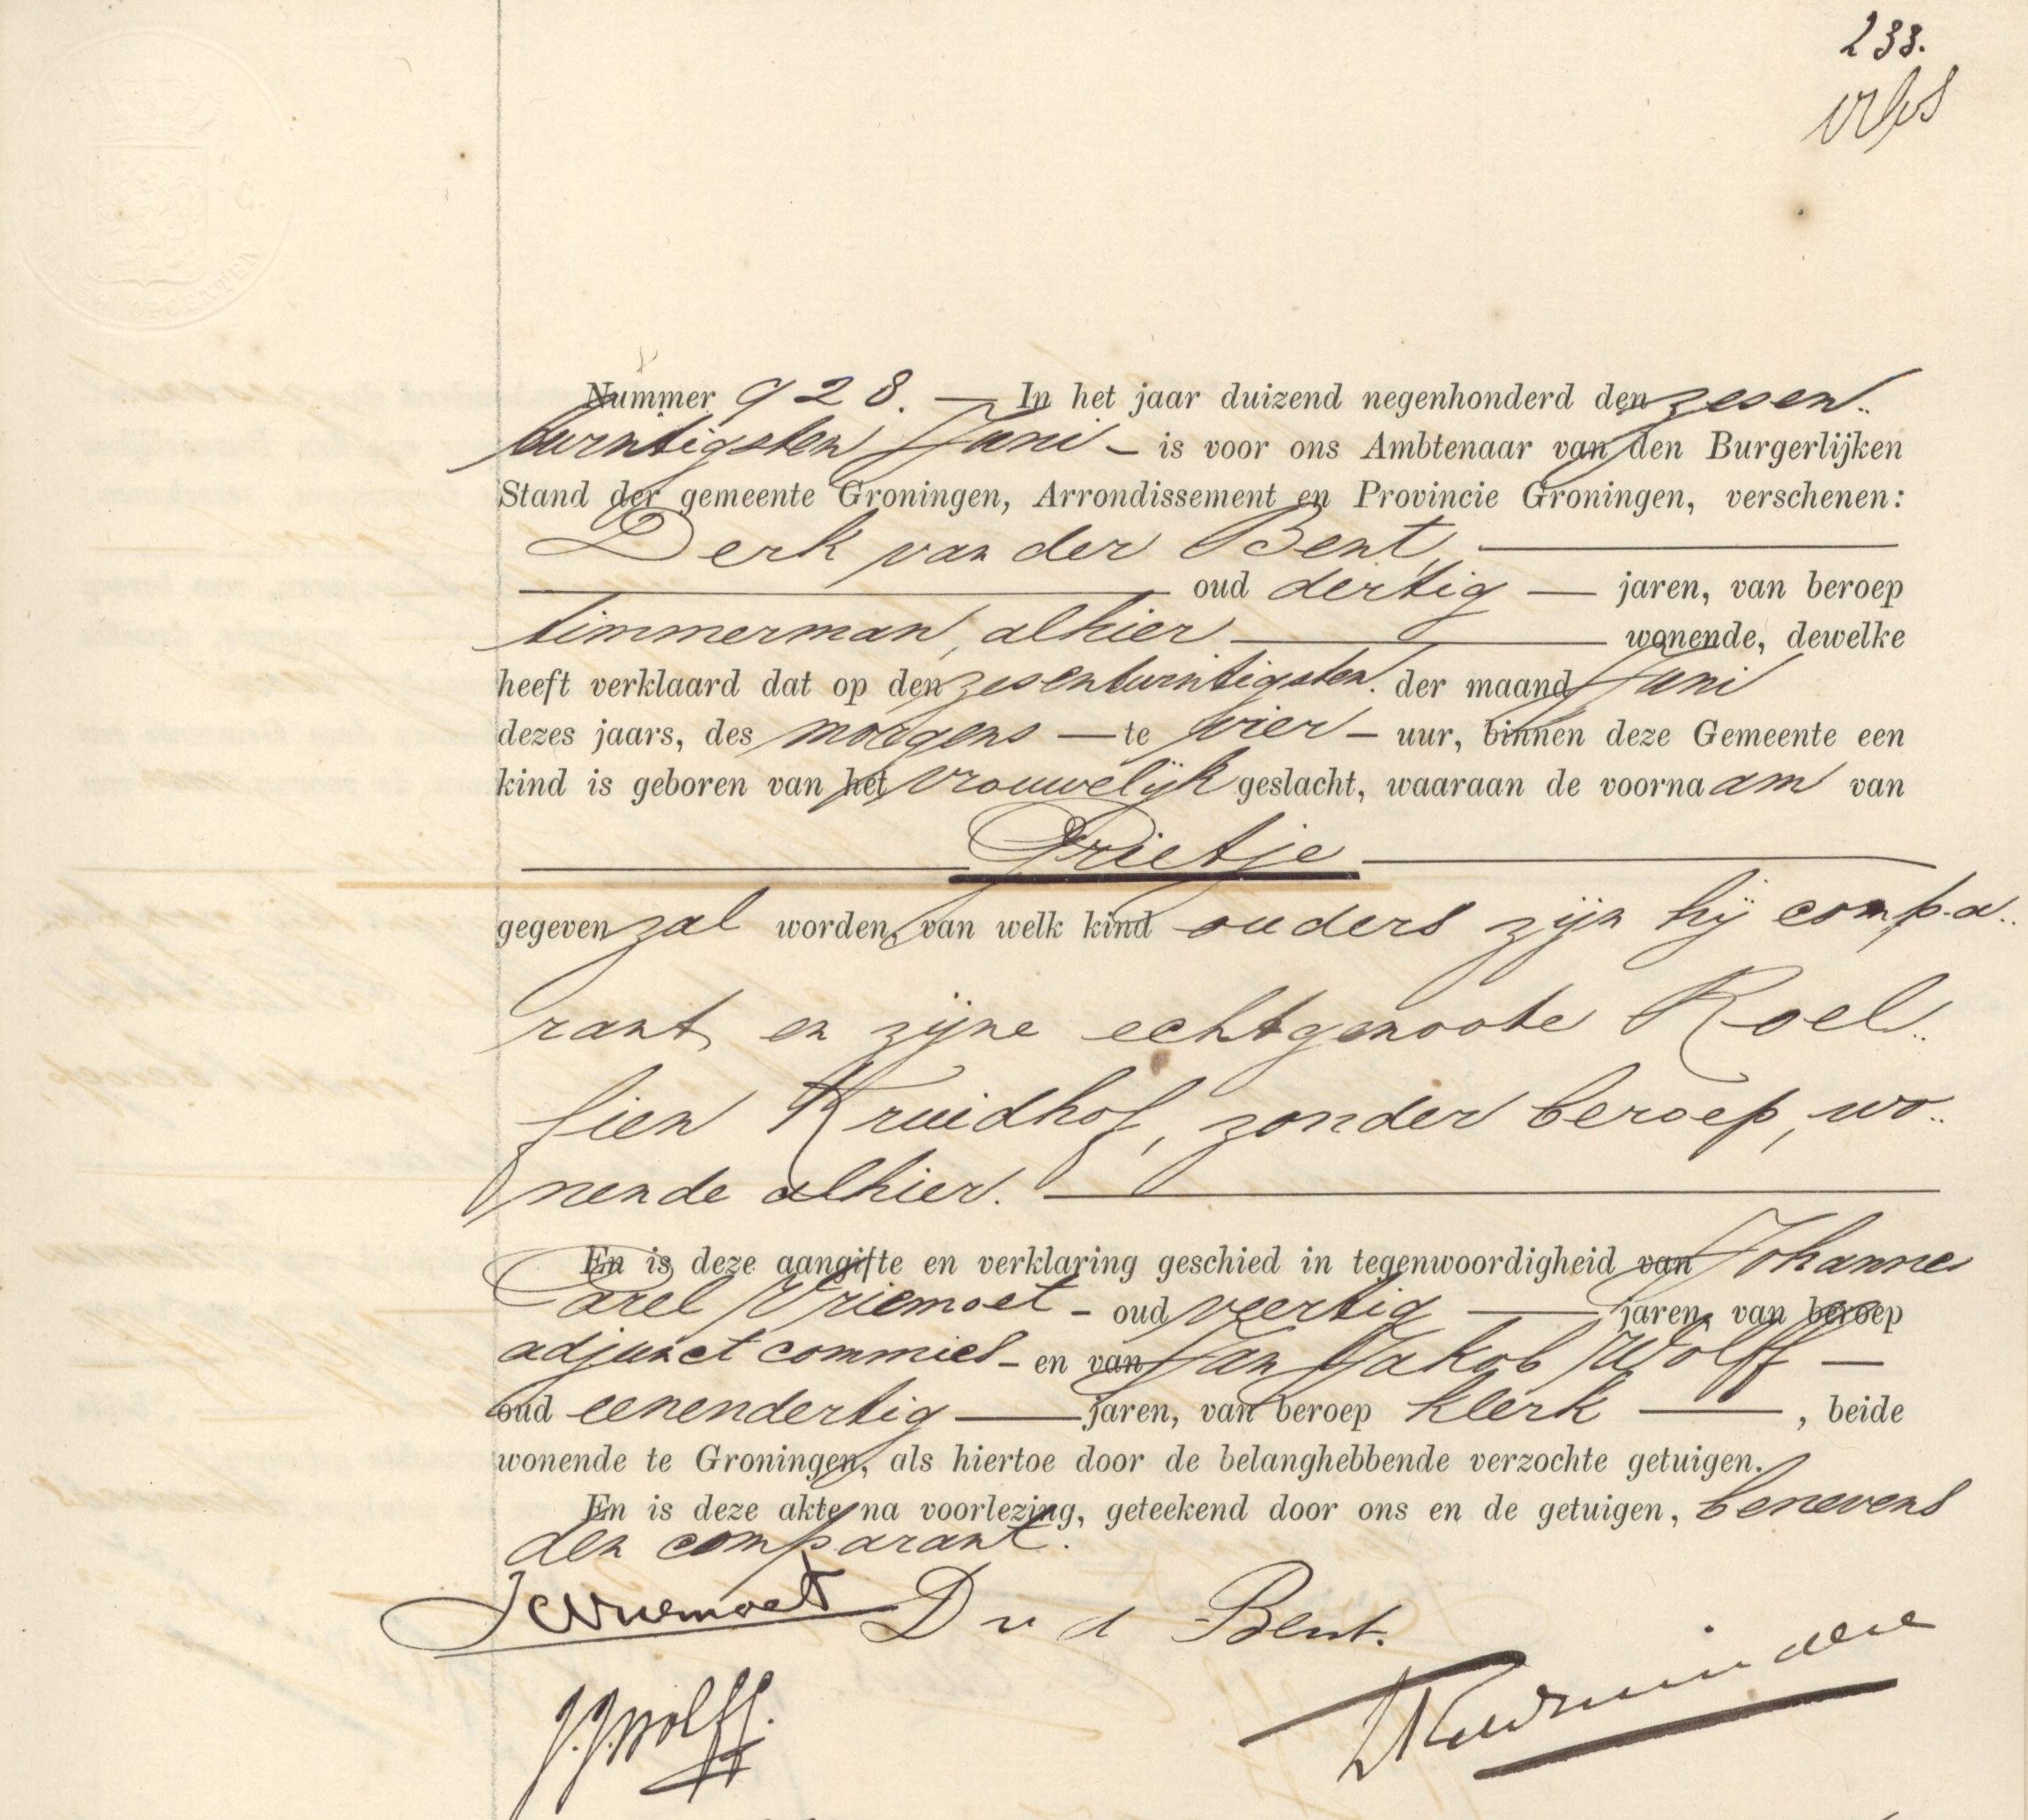 233.
Nummer 928. — In het jaar duizend negenhonderd den zesen„
twintigsten Juni – is voor ons Ambtenaar van den Burgerlijken
Stand der gemeente Groningen, Arrondissement en Provincie Groningen, verschenen:
Derk van der Bent, —
— oud dertig — jaren, van beroep
timmerman, alhier — wonende, dewelke
heeft verklaard dat op den zesentwintigsten. der maand Juni
dezes jaars, des morgens — te vier – uur, binnen deze Gemeente een
kind is geboren van het vrouwelijk geslacht, waaraan de voornaam van
— Grietje —
gegeven zal worden, van welk kind ouders zijn hij compa„
rant en zijne echtgenoote Roel„
fien Kruidhof, zonder beroep, wo„
nende alhier. —
En is deze aangifte en verklaring geschied in tegenwoordigheid van Johannes
Carel Vriemoet – oud veertig — jaren, van beroep
adjunct commies – en van Jan Jakob Wolff —
oud eenendertig — jaren, van beroep klerk — , beide
wonende te Groningen, als hiertoe door de belanghebbende verzochte getuigen.
En is deze akte na voorlezing, geteekend door ons en de getuigen, benevens
den comparant.
JCVriemoet D v d Bent.
J.J.Wolff.